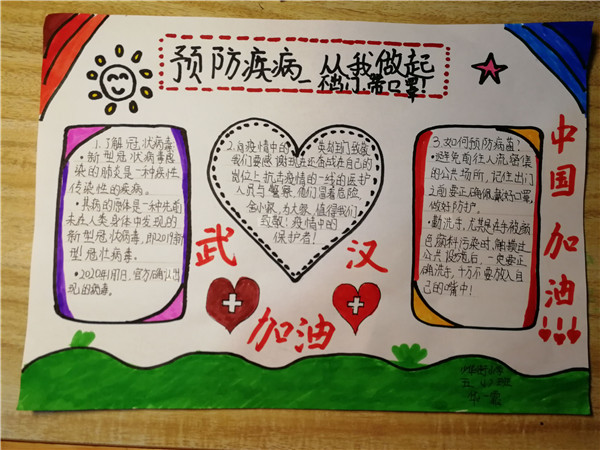 预防疾病 从我做起
不出门、带口罩!
1.了解冠状病毒
·新型冠状病毒感
染的肺炎是一种疾性,
传染性的疾病。
·其病的源体是一种先前
未在人类身体中发现的
新型冠状病毒,即2019新
型!冠壮病毒。
·2020年1月1日,官方确认出
现的病毒。
2.向疫情中的 英雄们致敬
我们要感谢现在还奋战在自己的
岗位上抗击疫情的一线的医护
人员与警察,他们冒着危险
舍小家,为大家,值得我们
致敬!疫情中的
保护者!
3.如何预防病菌?
·避免前往人流密集
的公共场所,记住出门
之前要正确佩戴好口罩,
做好防护。
·勤洗手,尤其是在手被
色 污染时,触摸过
公共设施后,一定要正
确洗手,千万不要放入自
己的嘴中!
武汉
加油
中国加油
五